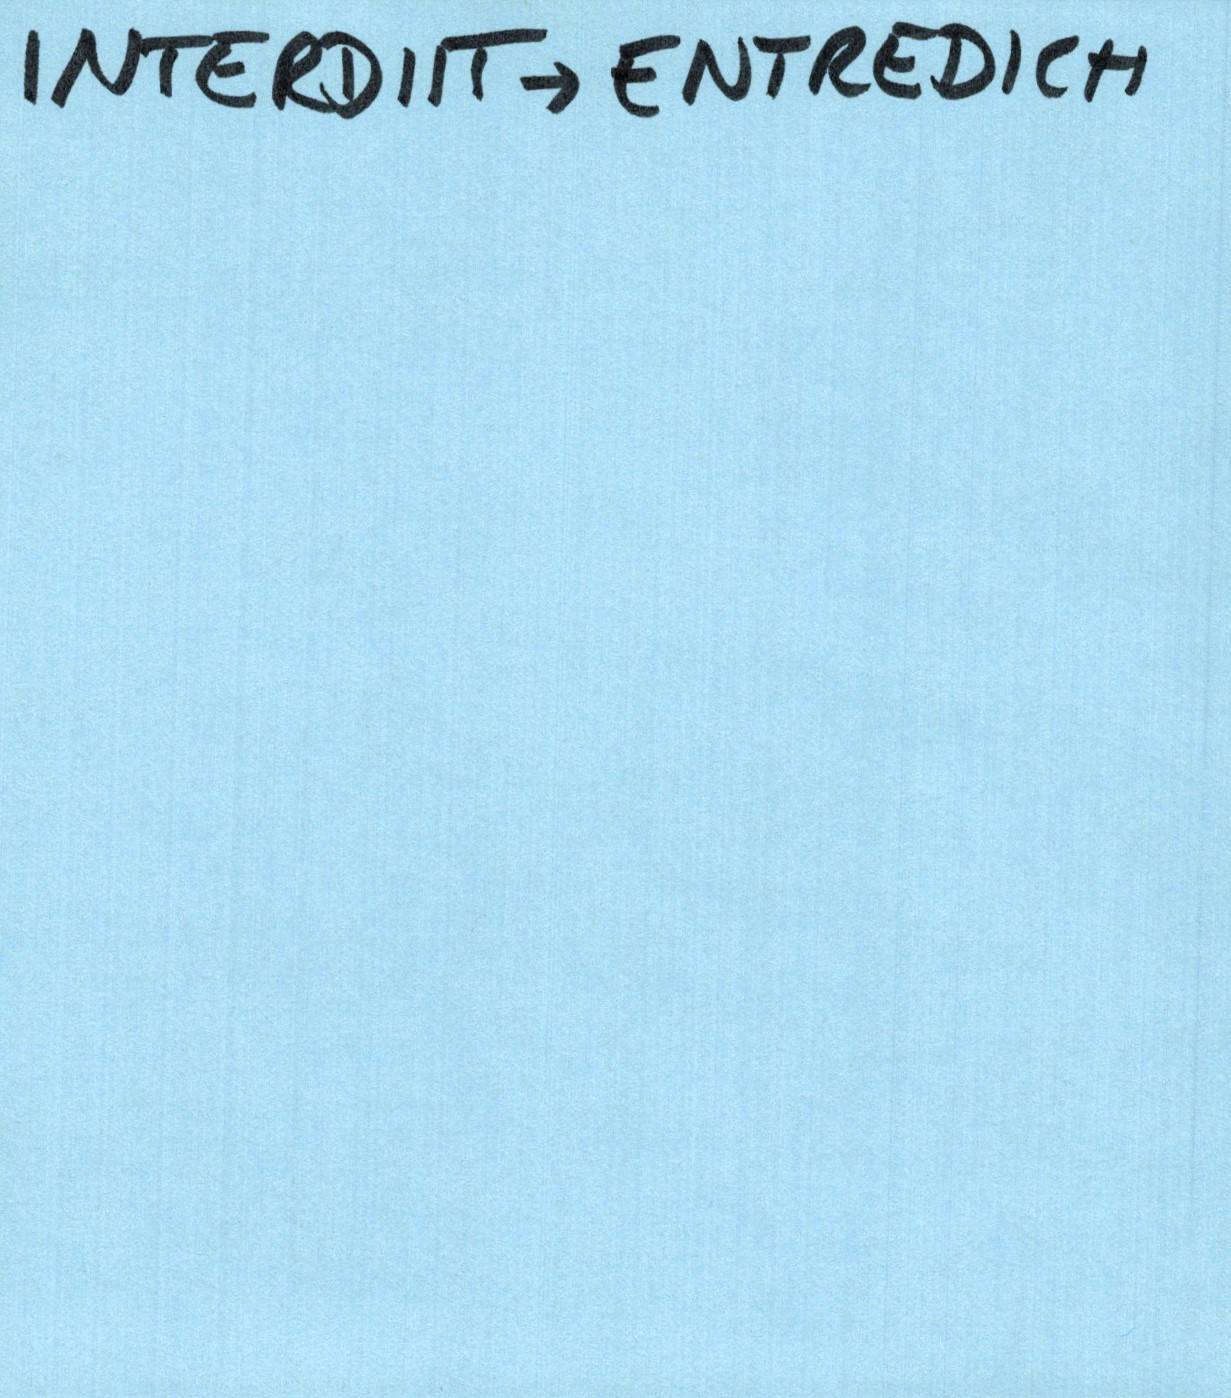 INTERDIIT → ENTREDICH